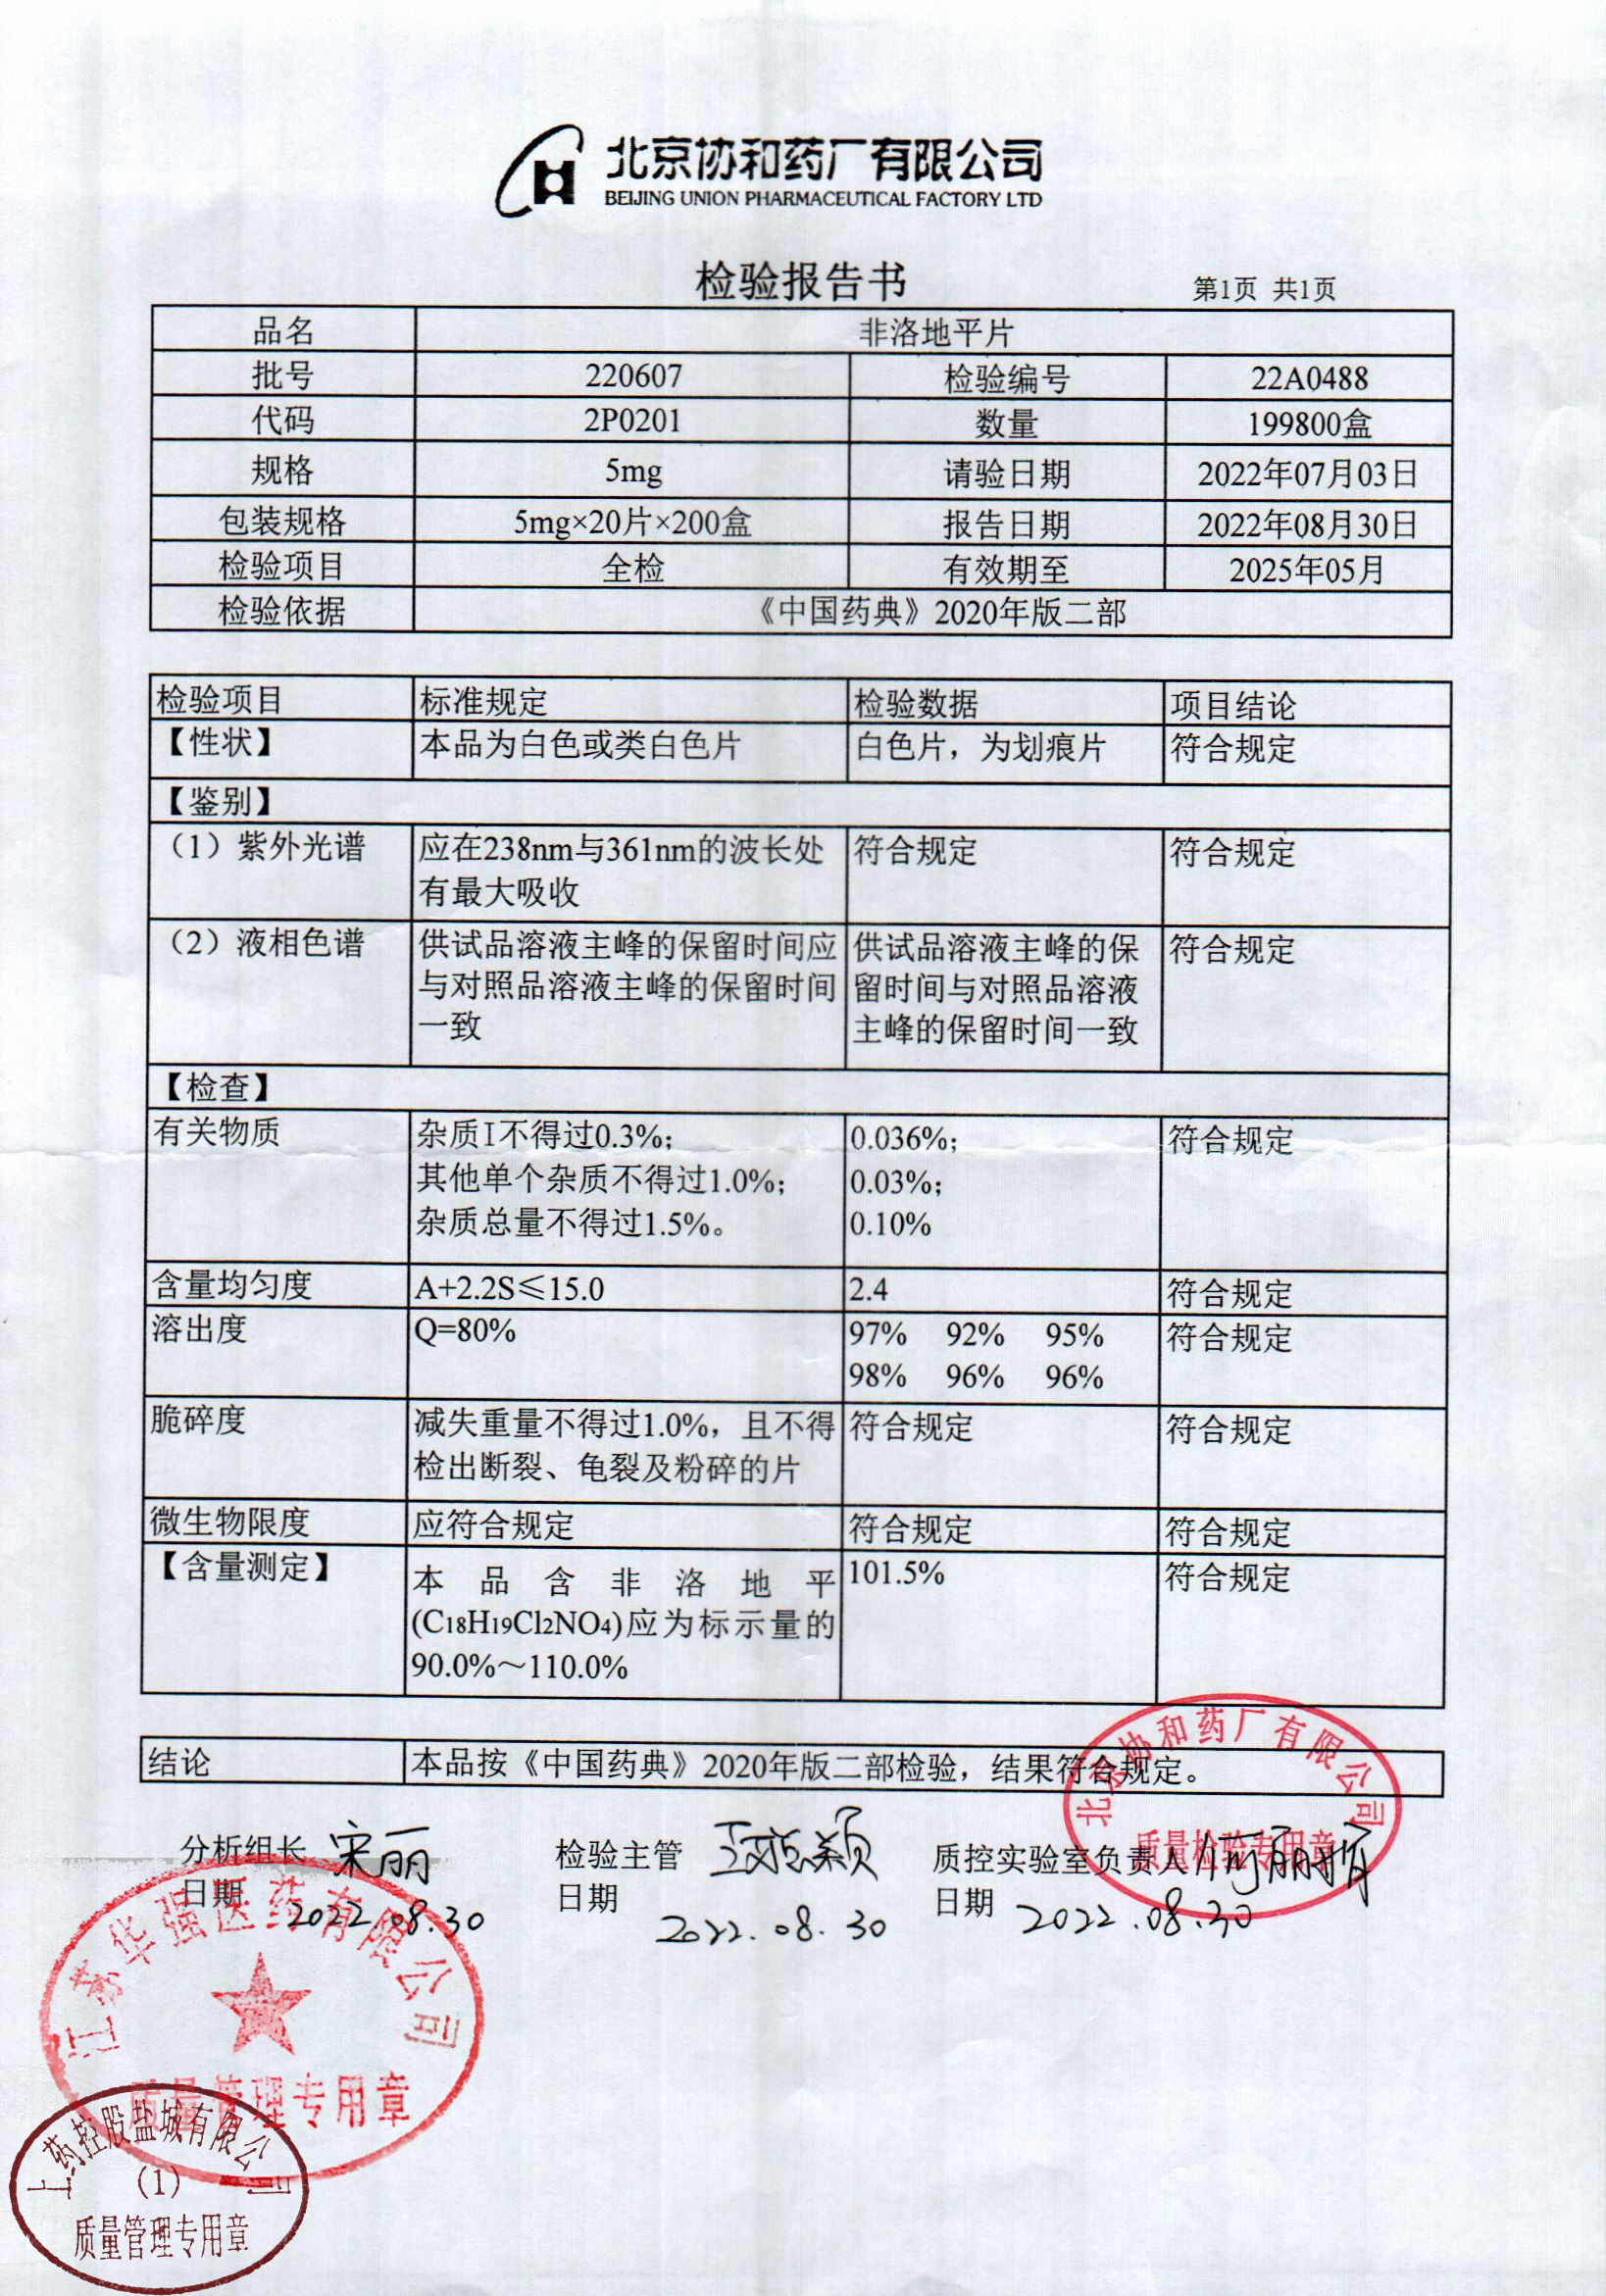 北京协和药厂有限公司
BEIJING UNION PHARMACEUTICAL FACTORY LTD
检验报告书
第1页 共1页
品名 非洛地平片
批号 220607 检验编号 22A0488
代码 2P0201 数量 199800盒
规格 5mg 请验日期 2022年07月03日
包装规格 5mg×20片×200盒 报告日期 2022年08月30日
检验项目 全检 有效期至 2025年05月
检验依据 《中国药典》2020年版二部
检验项目 标准规定 检验数据 项目结论
【性状】 本品为白色或类白色片 白色片，为划痕片 符合规定
【鉴别】
（1）紫外光谱 应在238nm与361nm的波长处 符合规定 符合规定
有最大吸收
（2）液相色谱 供试品溶液主峰的保留时间应 供试品溶液主峰的保 符合规定
与对照品溶液主峰的保留时间 留时间与对照品溶液
一致 主峰的保留时间一致
【检查】
有关物质 杂质I不得过0.3%； 0.036%； 符合规定
其他单个杂质不得过1.0%； 0.03%；
杂质总量不得过1.5%。 0.10%
含量均匀度 A+2.2S≤15.0 2.4 符合规定
溶出度 Q=80% 97% 92% 95% 符合规定
98% 96% 96%
脆碎度 减失重量不得过1.0%，且不得 符合规定 符合规定
检出断裂、龟裂及粉碎的片
微生物限度 应符合规定 符合规定 符合规定
【含量测定】 本品含非洛地平 101.5% 符合规定
(C18H19Cl2NO4)应为标示量的
90.0%～110.0%
结论 本品按《中国药典》2020年版二部检验，结果符合规定。
北京协和药厂有限公司
质量检验专用章
分析组长 宋丽 检验主管 质控实验室负责人
日期 2022.08.30 日期 2022.08.30 日期 2022.08.30
江苏华强医药有限公司
质量管理专用章
上药控股盐城有限公司
(1)
质量管理专用章